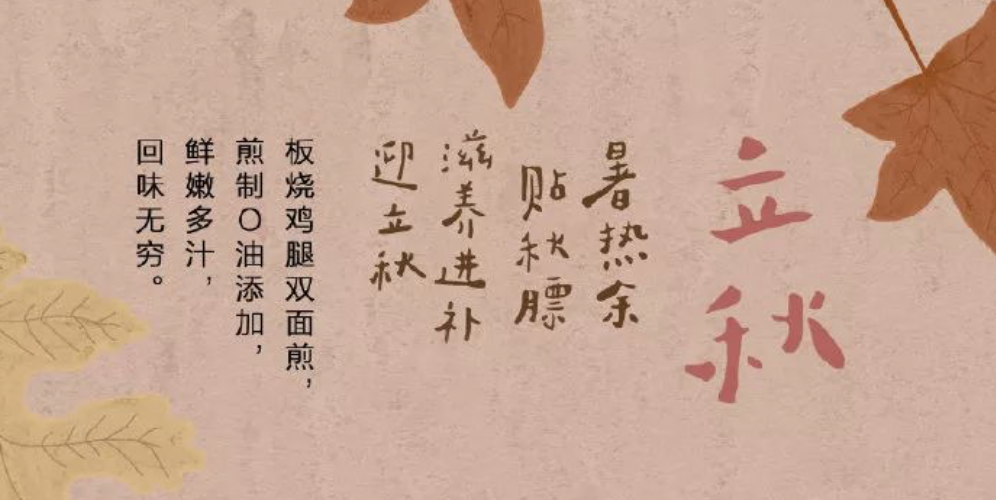 立秋
暑热余
贴秋膘
滋养进补
迎立秋
板烧鸡腿双面煎，
煎制O油添加，
鲜嫩多汁，
回味无穷。